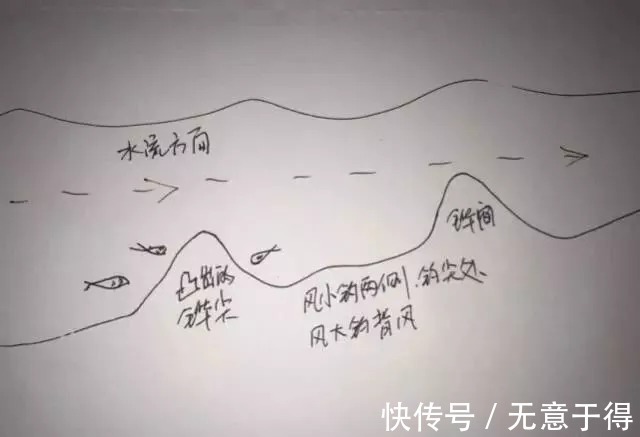 水流方向
凸出的
尖
风小钓两侧.钓尖处
风大钓背风
快传号 / 无意于得